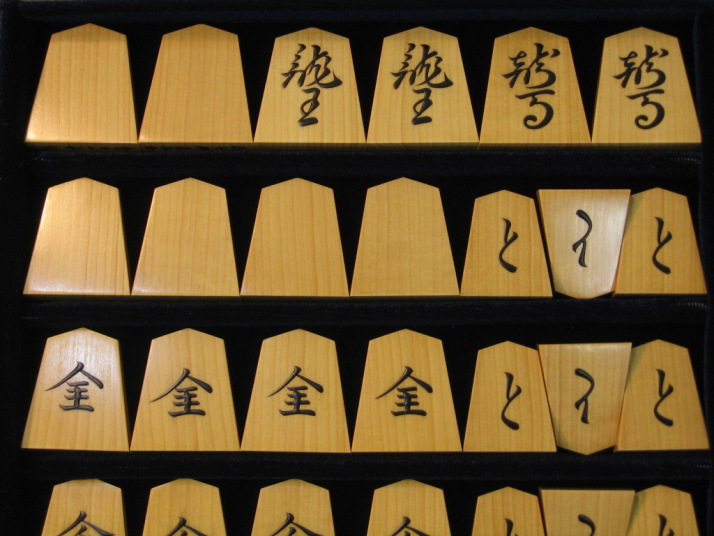 龍王 龍王 龍馬 龍馬
と と と
金 金 金 金 と と と